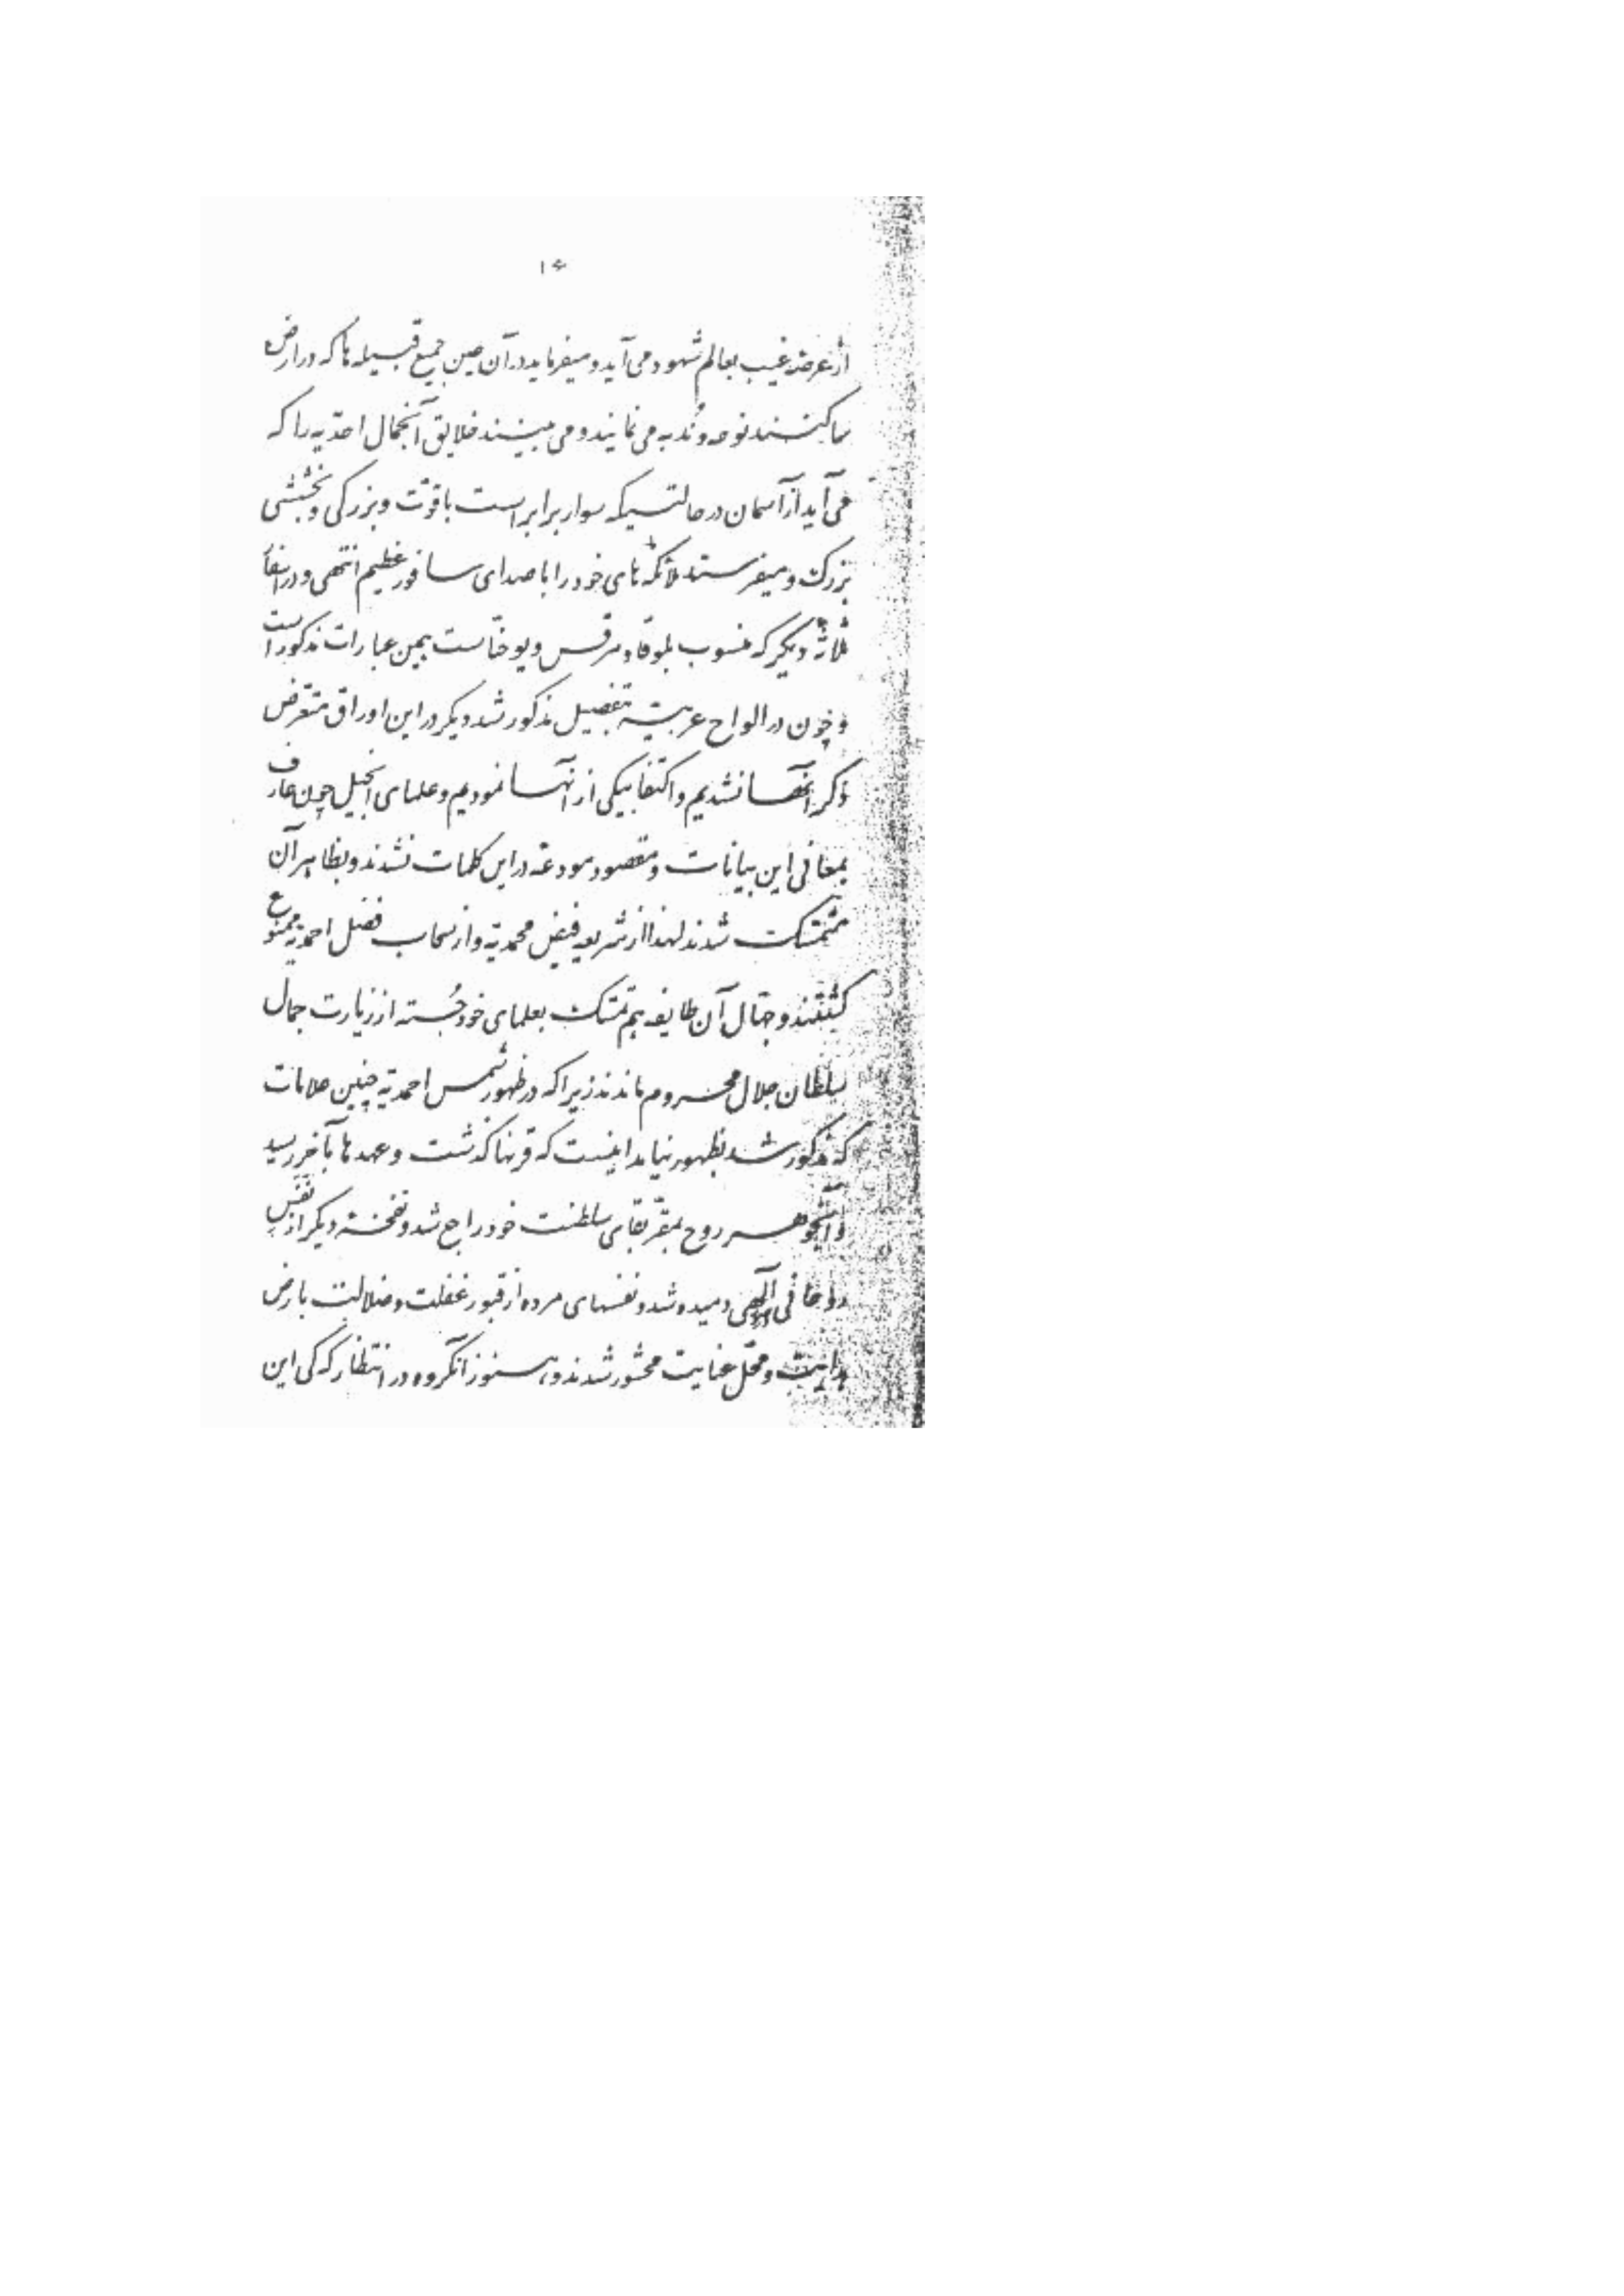 ۱۶
از عرصهٔ غیب بعالم شهود می آید و میفرماید در آن حین جمیع قبیله ها که در ارض
ساکنند نوحه و ندبه می نمایند و می بینند خلایق آنجمال احدّیه را که
می آید از آسمان در حالتیکه سوار بر ابر است با قوّت و بزرگی و بخششی
بزرگ و میفرستد ملائکه های خود را با صدای سافور عظیم انتهی و در اسفار
ثلاثهٔ دیگر که منسوب بلوقا و مرقس و یوحنّاست همین عبارات مذکور است
و چون در الواح عربیّه بتفصیل مذکور شد دیگر در این اوراق متعرّض
ذکر آنها نشدیم و اکتفا بیکی از آنها نمودیم و علمای انجیل چون عارف
بمعانی این بیانات و مقصود مودعهٔ در این کلمات نشدند و بظاهر آن
متمسّک شدند لهذا از شریعهٔ فیض محمدیّه و از سحاب فضل احمدیّه ممنوع
گشتند و جهّال آن طایفه هم تمسّک بعلمای خود جُسته از زیارت جمال
سلطان جلال محروم ماندند زیرا که در ظهور شمس احمدیّه چنین علامات
که مذکور شد بظهور نیامد اینست که قرنها گذشت و عهدها بآخر رسید
و آنجوهر روح بمقرّ بقای سلطنت خود راجع شد و نفخهٔ دیگر از نَفَس
روحانی الهی دمیده شد و نفسهای مرده از قبور غفلت و ضلالت بارض
هدایت و محلّ عنایت محشور شدند و هنوز آنگروه در انتظار که کی این